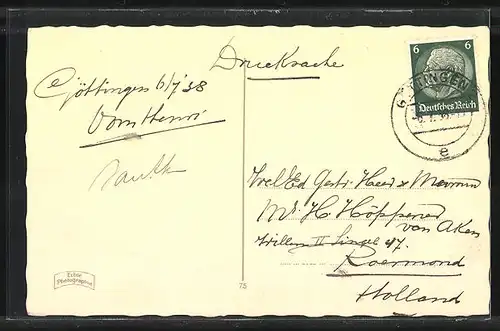 Drucksache
Göttingen 6/7 '38
von Henri
6 6
Deutsches Reich
GÖTTINGEN
e
WelEd. Gestr. Heer & Mevrouw
Mr. H. Höppener
van Aken
Willem II Singel 47.
Roermond
Holland
Echte
Photographie
75